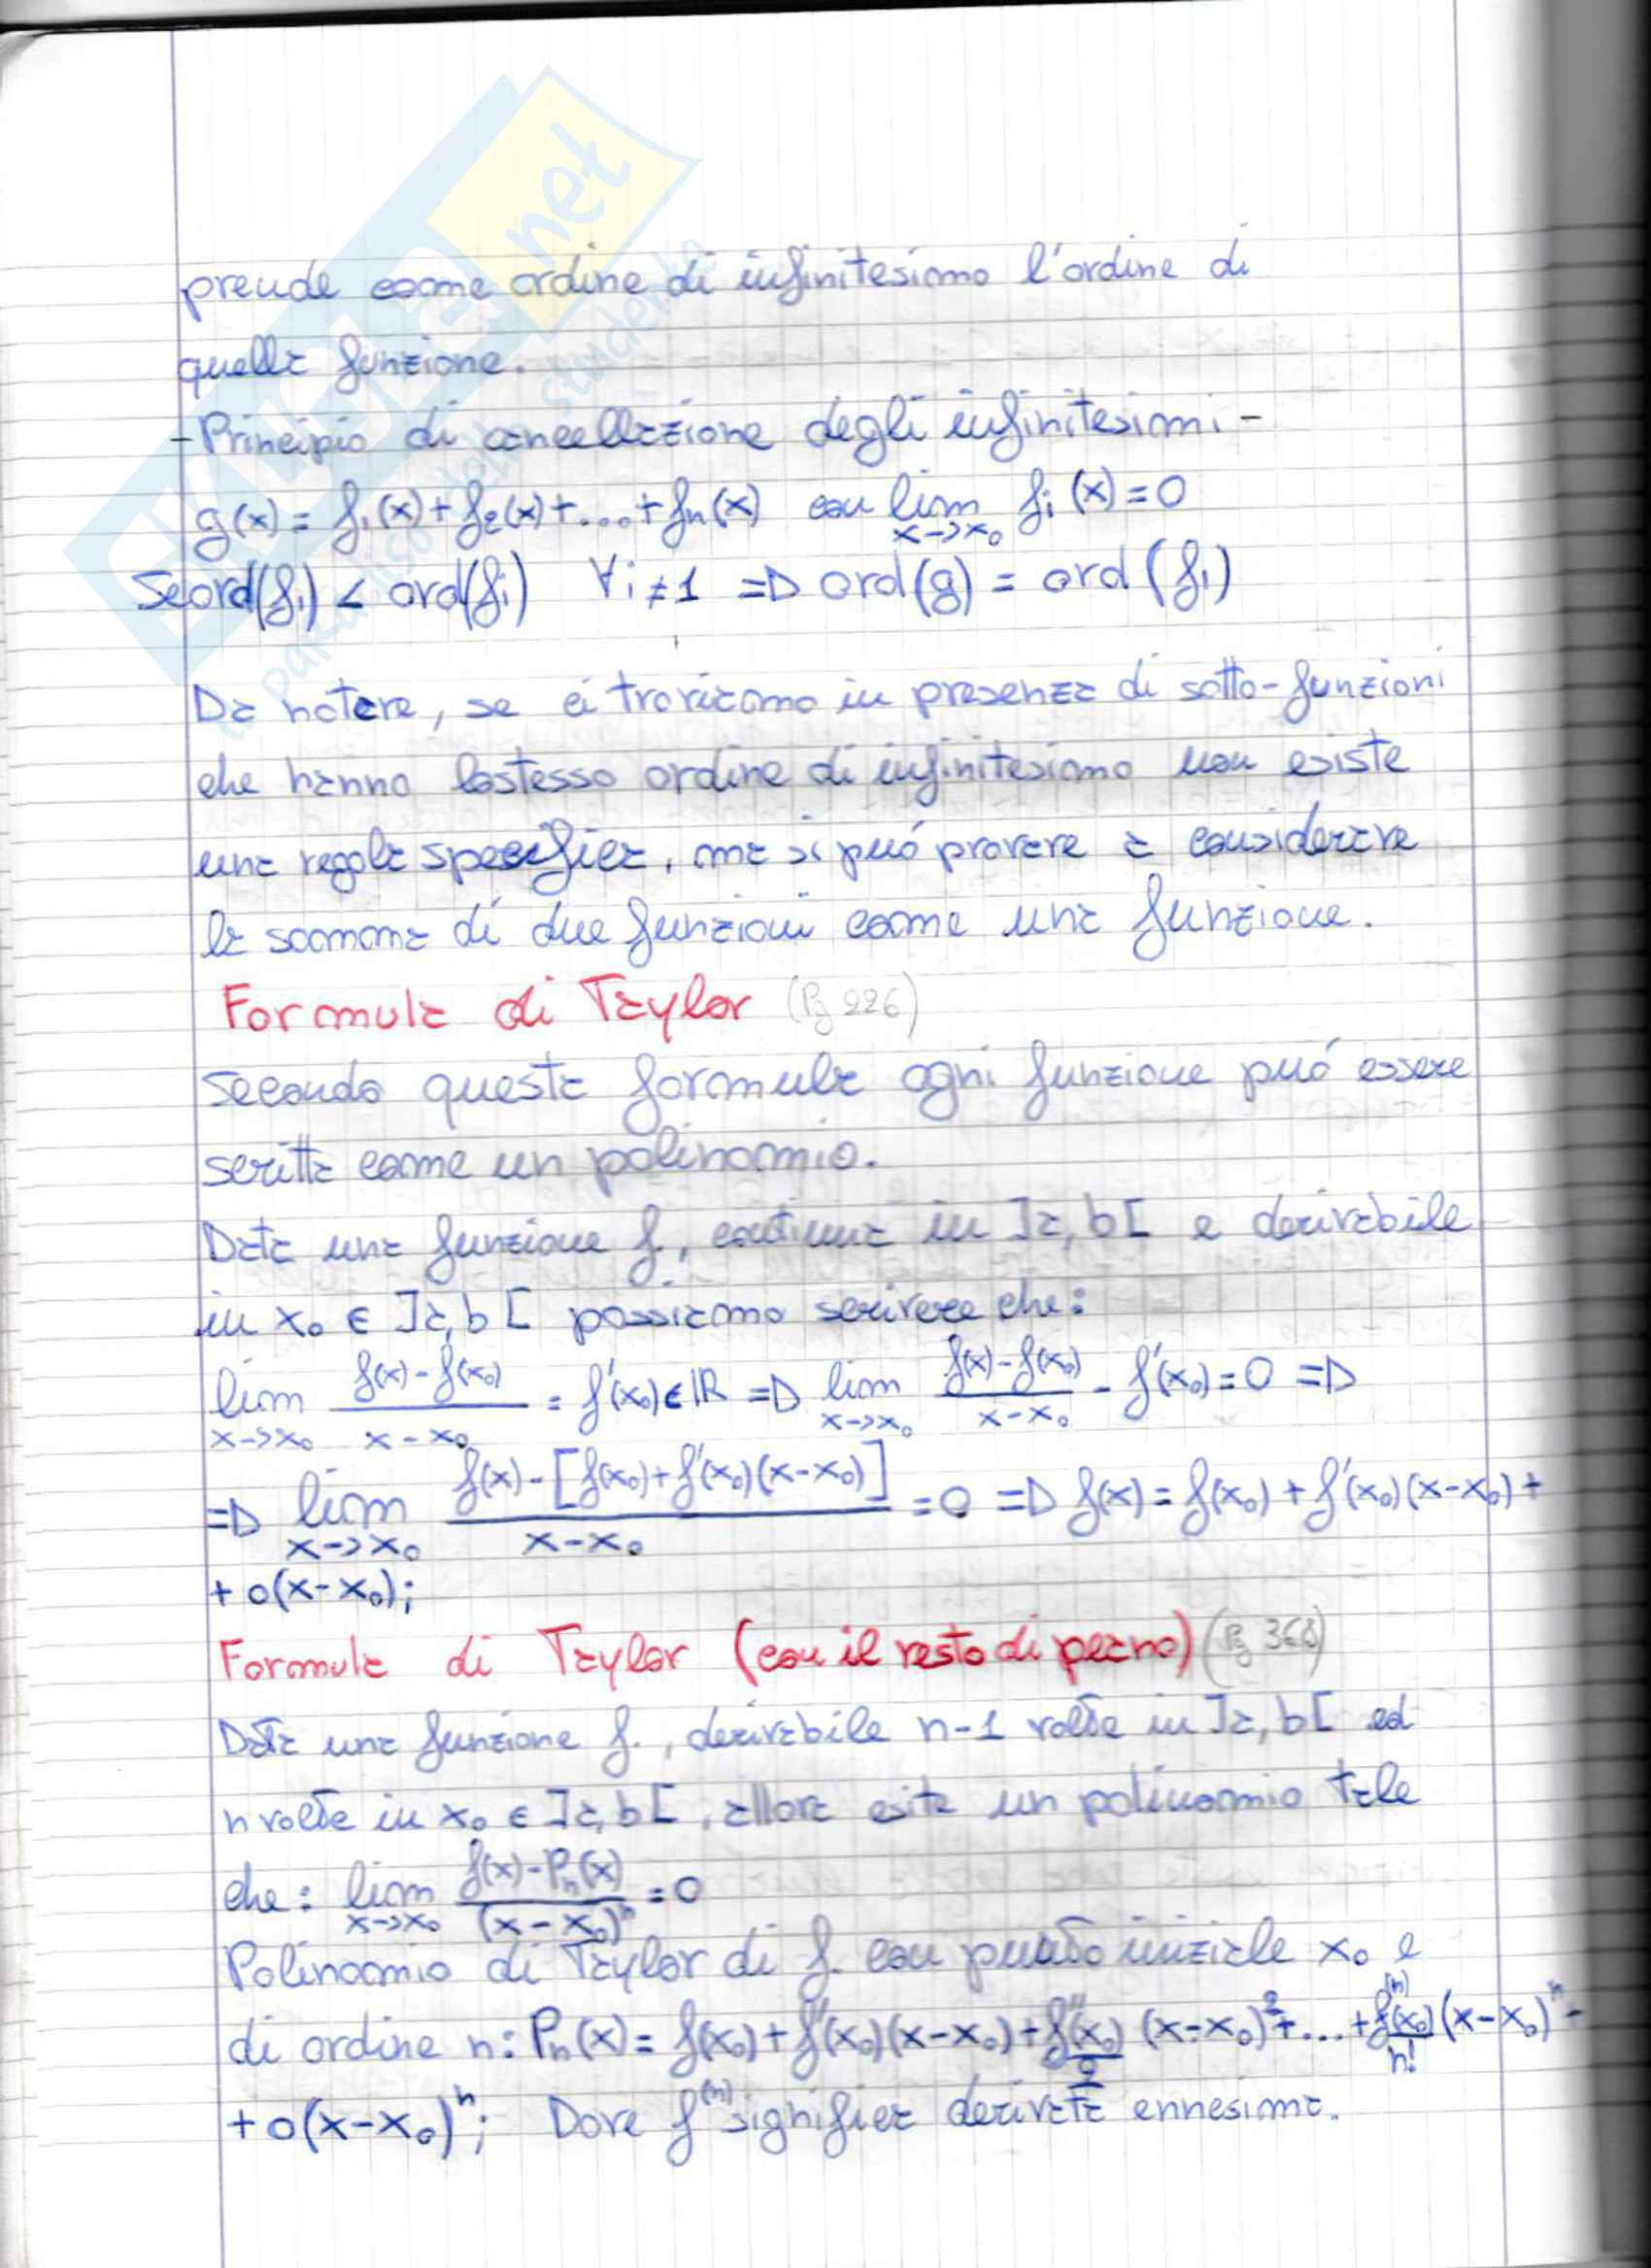 prende come ordine di infinitesimo l'ordine di
quella funzione.
- Principio di cancellazione degli infinitesimi -
g(x) = f₁(x) + f₂(x) + .... + fn(x) con lim x->x₀ fi(x) = 0
Se ord(f₁) < ord(fi) ∀i ≠ 1 => ord(g) = ord(f₁)
Da notare, se ci troviamo in presenza di sotto-funzioni
che hanno lo stesso ordine di infinitesimo non esiste
una regola specifica, ma si può provare a considerare
la somma di due funzioni come una funzione.
Formula di Taylor (Pg 226)
Secondo questa formula ogni funzione può essere
scritta come un polinomio.
Data una funzione f, continua in ]a, b[ e derivabile
in x₀ ∈ ]a, b[ possiamo scrivere che:
lim x->x₀ (f(x) - f(x₀))/(x - x₀) = f'(x₀) ∈ IR => lim x->x₀ (f(x) - f(x₀))/(x - x₀) - f'(x₀) = 0 =>
=> lim x->x₀ (f(x) - [f(x₀) + f'(x₀)(x - x₀)])/(x - x₀) = 0 => f(x) = f(x₀) + f'(x₀)(x - x₀) +
+ o(x - x₀);
Formula di Taylor (con il resto di peano) (Pg 368)
Data una funzione f, derivabile n-1 volte in ]a, b[ ed
n volte in x₀ ∈ ]a, b[, allora esite un polinomio tale
che: lim x->x₀ (f(x) - Pn(x))/(x - x₀)ⁿ = 0
Polinomio di Taylor di f con punto iniziale x₀ e
di ordine n: Pn(x) = f(x₀) + f'(x₀)(x - x₀) + f''(x₀)/2 (x - x₀)² + ... + f⁽ⁿ⁾(x₀)/n! (x - x₀)ⁿ -
+ o(x - x₀)ⁿ; Dove f⁽ⁿ⁾ significa derivata ennesima.